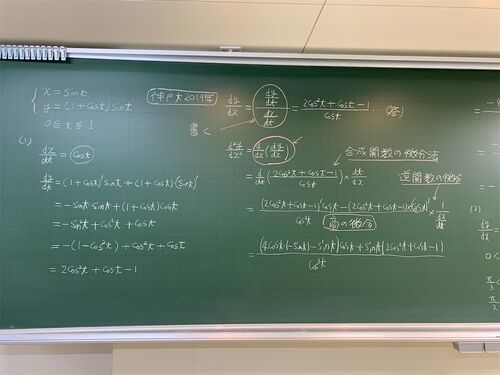 x = sint
y = (1 + cost) sint
0 ≦ t ≦ 1
神戸大2019年
(1)
dx/dt = cost
dy/dt = (1 + cost)' sint + (1 + cost)(sint)'
= -sint・sint + (1 + cost) cost
= -sin²t + cos²t + cost
= -(1 - cos²t) + cos²t + cost
= 2cos²t + cost - 1
dy/dx = (dy/dt)/(dx/dt) = (2cos²t + cost - 1)/cost …(答)
書く
d²y/dx² = d/dx (dy/dx)
合成関数の微分法
= d/dt ((2cos²t + cost - 1)/cost) × dt/dx
逆関数の微分
= ((2cos²t + cost - 1)' cost - (2cos²t + cost - 1)×(cost)')/cos²t × 1/(dx/dt)
商の微分
= ((4cost・(-sint) - sint) cost + sint (2cos²t + cost - 1))/cos³t
(2)
dy/dx =
0 <